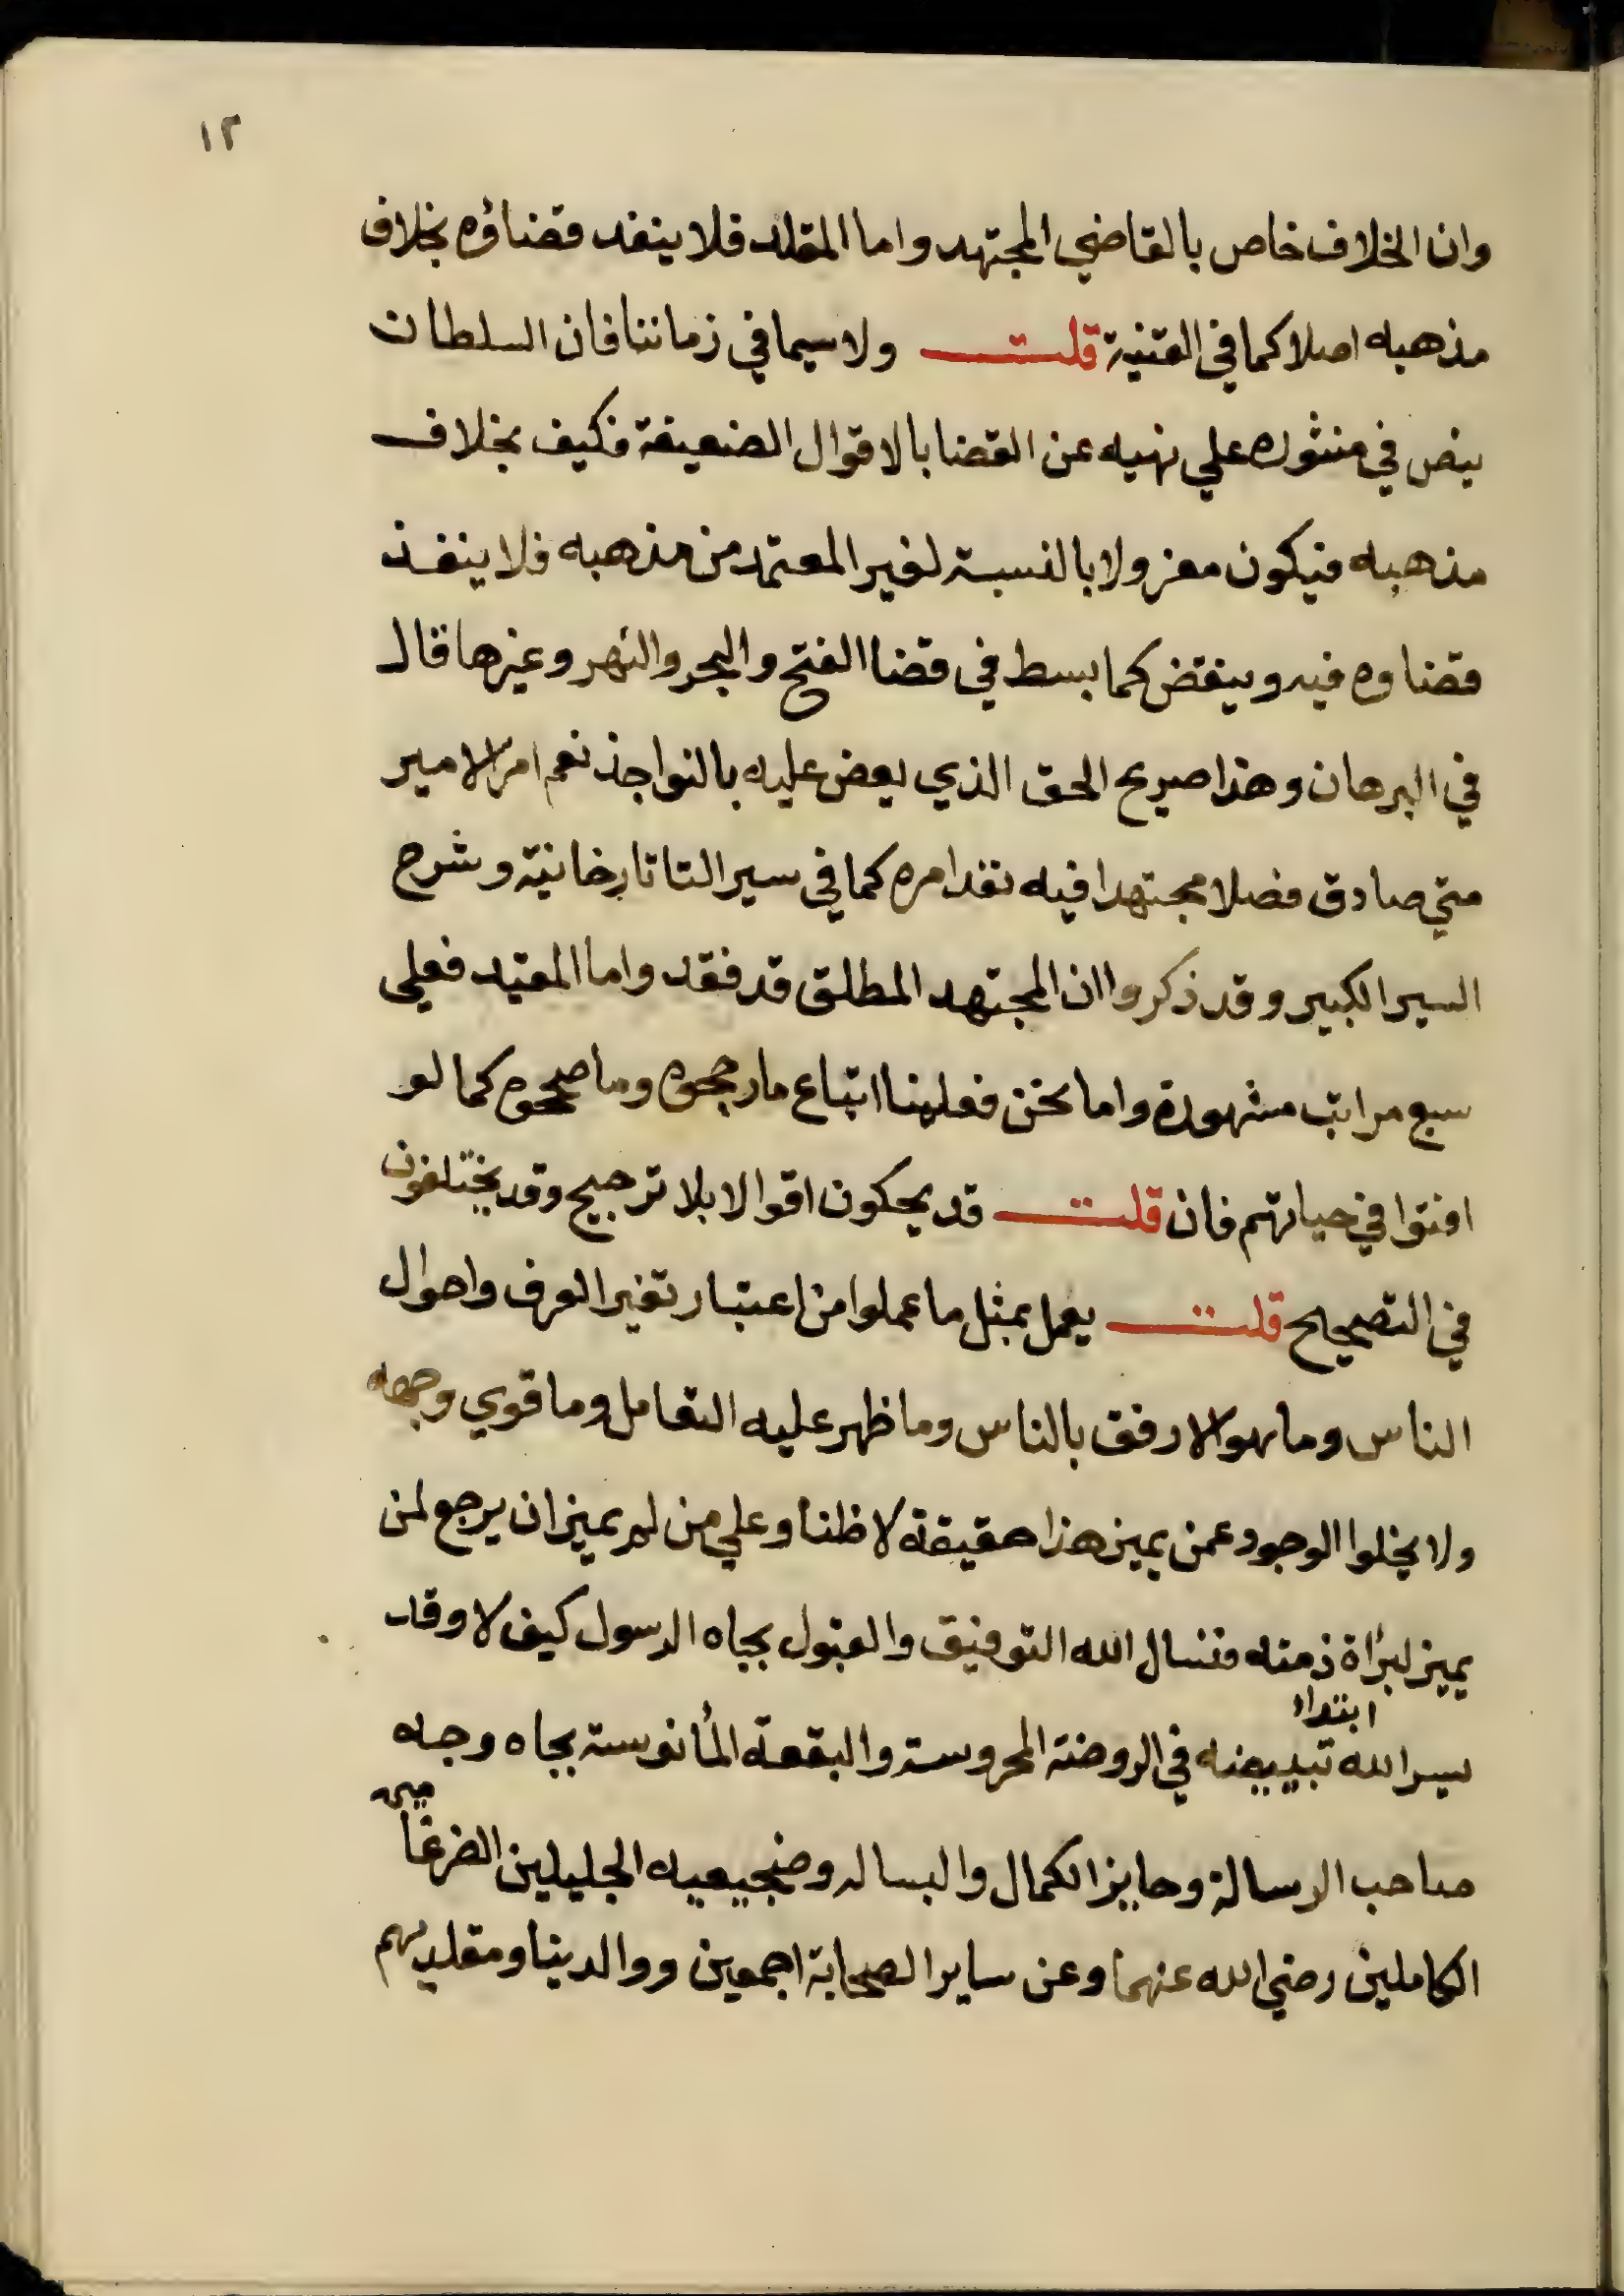 ١٢
وان الخلاف خاص بالقاضي المجتهد واما المقلد فلا ينفد قضاؤه بخلاف
مذهبه اصلا كما في القنية قلت ولا سيما في زماننا فان السلطان
ينص في منشوره علي نهيه عن القضا بالاقوال الضعيفة فكيف بخلاف
مذهبه فيكون معزولا بالنسبة لغير المعتمد من مذهبه فلا ينفذ
قضاوه فيه وينقض كما بسط في قضا الفتح والبحر والنهر وغيرها قال
في البرهان وهذا صريح الحق الذي يعض عليه بالنواجذ نعم امر الامير
متي صادق فصلا مجتهدا فيه نفد امره كما في سير التاتارخانية وشرح
السير الكبير وقد ذكروا ان المجتهد المطلق قد فقد واما المقيد فعلي
سبع مراتب مشهورة واما نحن فعلينا اتباع ما رجحوه وما صححوه كما لو
افتوا في حياتهم فان قلت قد يحكون اقوالا بلا ترجيح وقد يختلفون
في التصحيح قلت يعمل بمثل ما عملوا من اعتبار تغير العرف واحوال
الناس وما هو الارفق بالناس وما ظهر عليه التعامل وما قوي وجهه
ولا يخلوا الوجود عمن يميز هذا حقيقة لا ظنا وعلي من لم يميز ان يرجع لمن
يميز لبرأة ذمته فنسال الله التوفيق والقبول بجاه الرسول كيف لا وقد
يسر الله ابتداء تبييضه في الروضة المحروسة والبقعة المأنوسة بجاه وجه
صاحب الرسالة وحايز الكمال والبساله وضجيعيه الجليلين الضرغامين
الكاملين رضي الله عنهما وعن ساير الصحابة اجمعين ووالدينا ومقلديهم